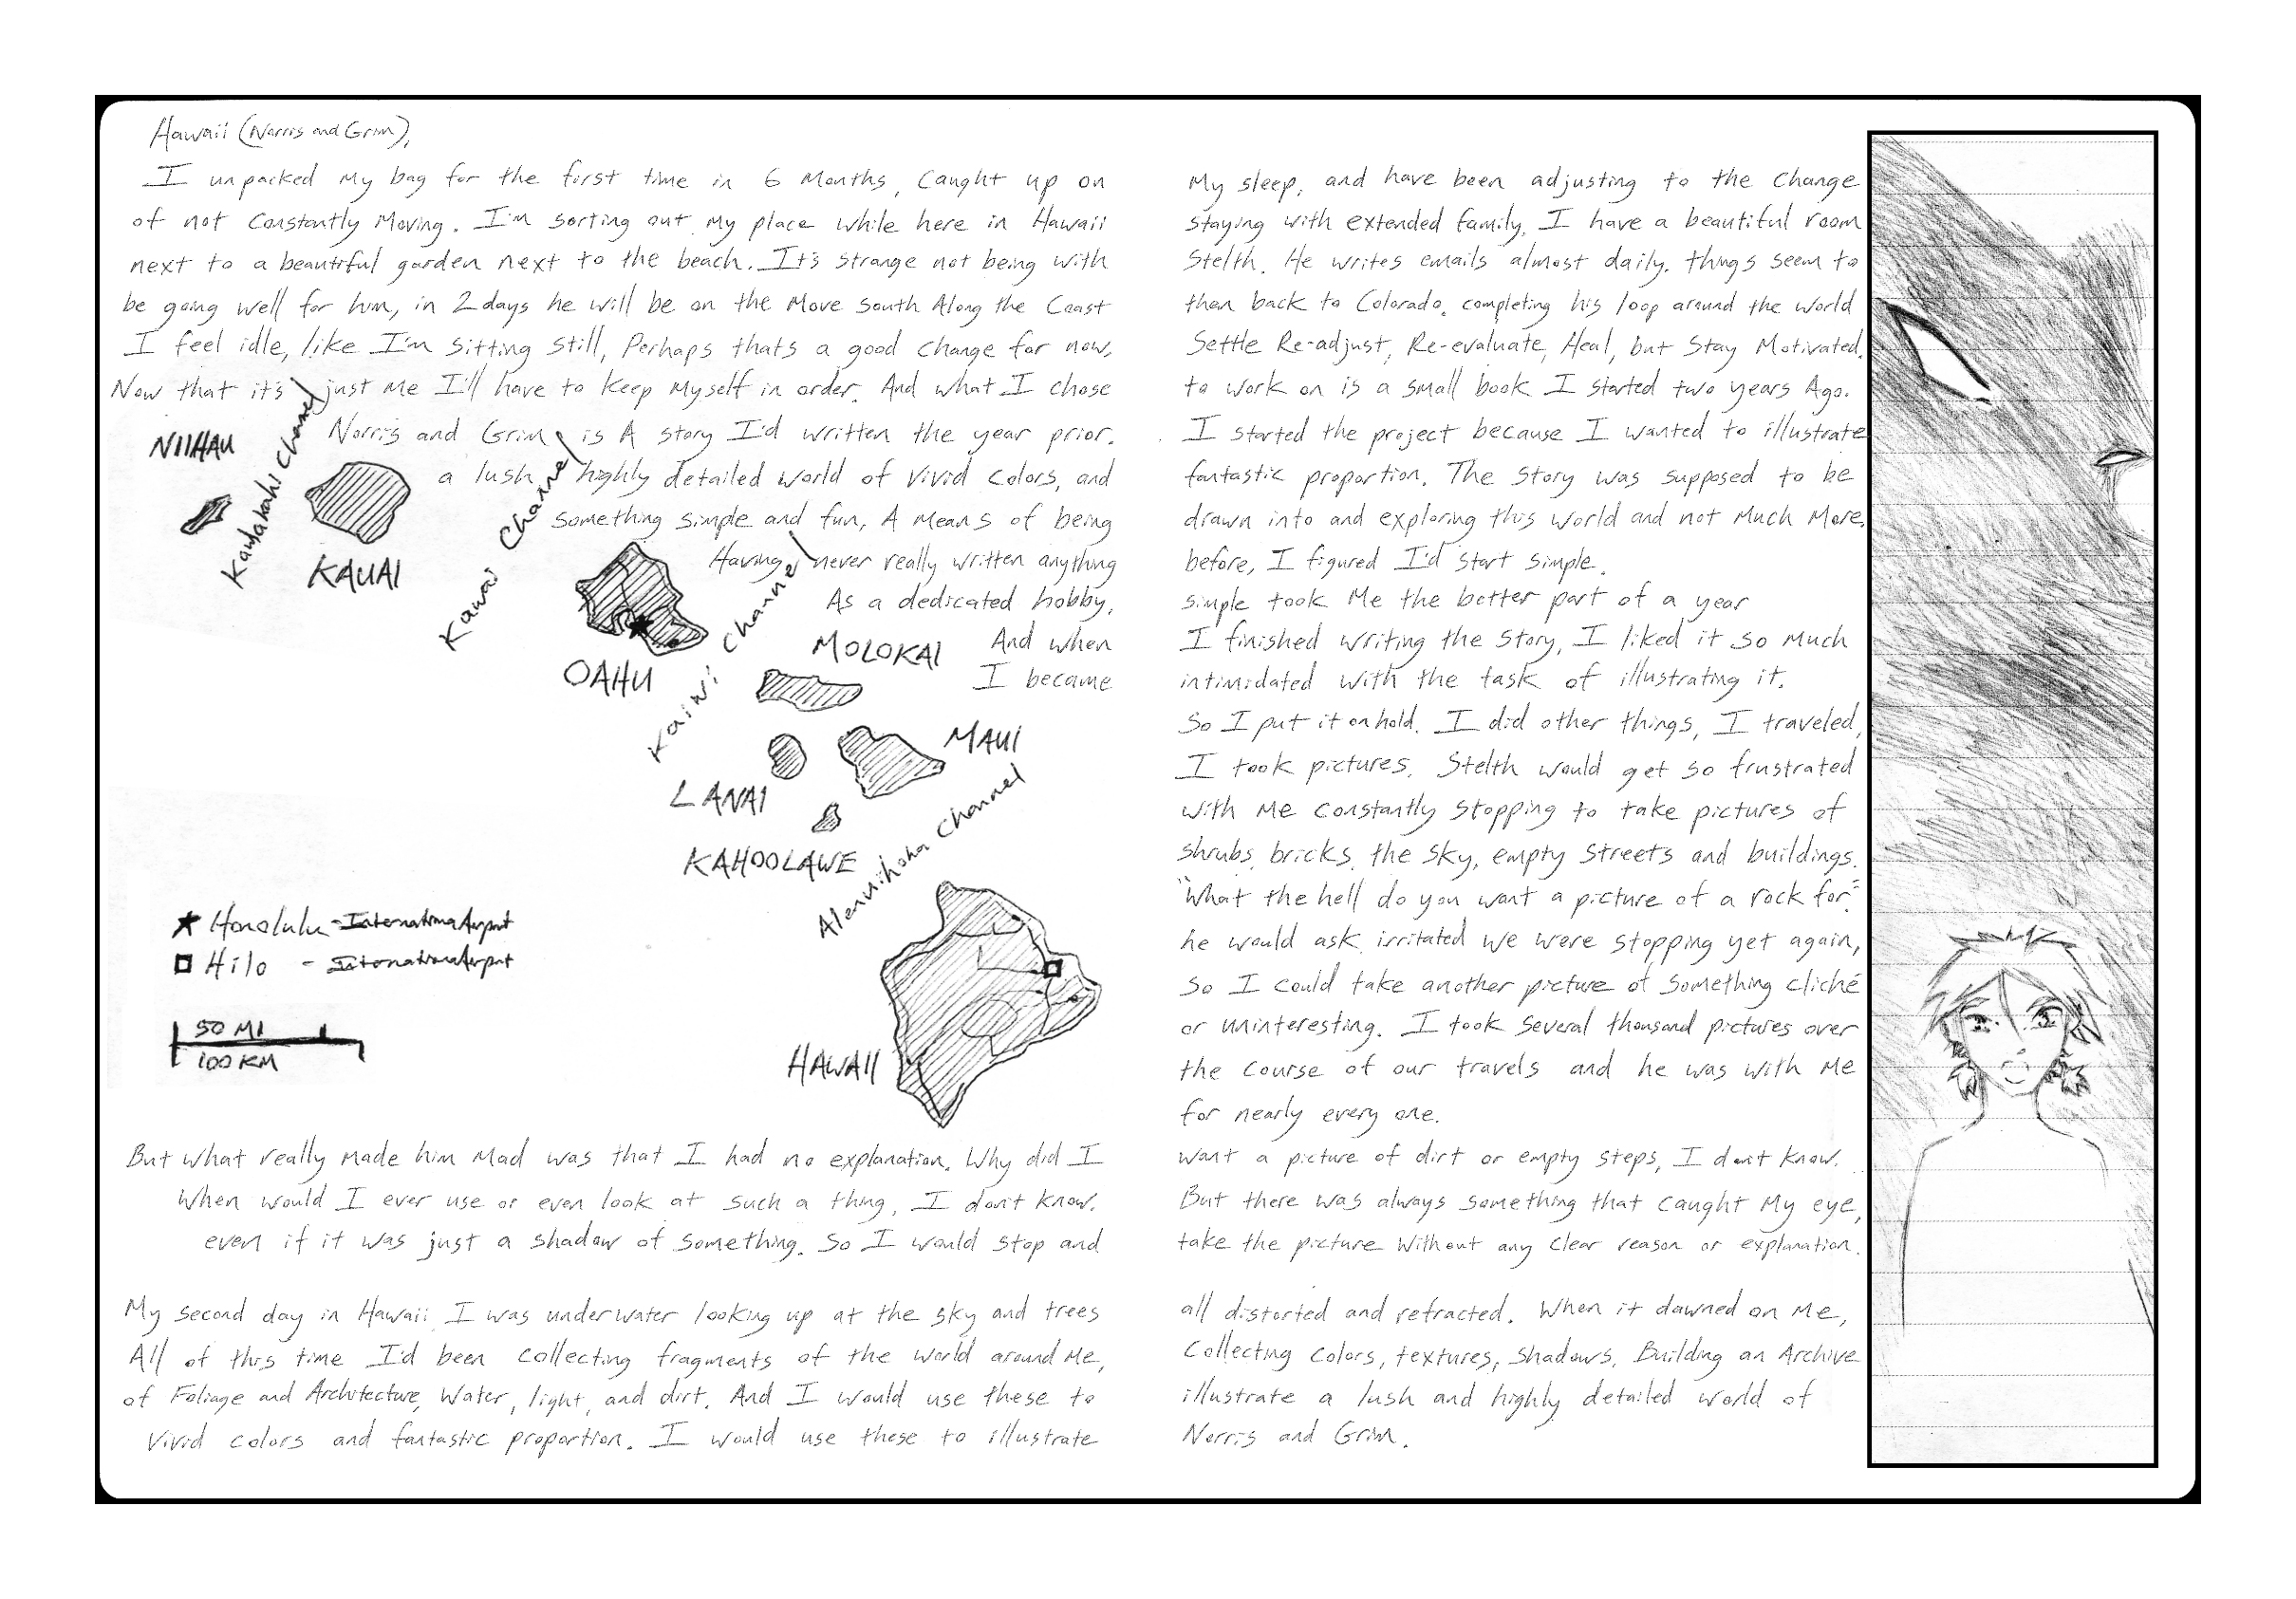 Hawaii (Norris and Grim),
I unpacked My bag for the first time in 6 Months, Caught up on My sleep, and have been adjusting to the Change
of not Constantly Moving. I'm sorting out My place while here in Hawaii staying with extended family. I have a beautiful room
next to a beautiful garden next to the beach. It's strange not being with Stelth. He writes emails almost daily. things seem to
be going well for him, in 2 days he will be on the Move South Along the Coast then back to Colorado. completing his loop around the world
I feel idle, like I'm Sitting Still, Perhaps thats a good Change for now. Settle Re-adjust, Re-evaluate, Heal, but Stay Motivated.
Now that it's just Me I'll have to Keep Myself in order. And what I chose to work on is a small book I started two years Ago.
Norris and Grim is A story I'd written the year prior. I started the project because I wanted to illustrate
a lush highly detailed world of Vivid Colors, and fantastic proportion. The Story was supposed to be
something simple and fun, A Means of being drawn into and exploring this world and not Much More.
Having never really written anything before, I figured I'd Start Simple.
As a dedicated hobby, simple took Me the better part of a year
And when I finished writing the Story, I liked it so Much
I became intimidated with the task of illustrating it.
NIIHAU
Kaulakahi Channel
KAUAI
Kawai Channel
OAHU
Kaiwi Channel
MOLOKAI
LANAI
MAUI
KAHOOLAWE
Alenuihaha Channel
HAWAII
Honolulu - International Airport
Hilo - International Airport
50 MI
100 KM
So I put it on hold. I did other things, I traveled,
I took pictures. Stelth would get so frustrated
with Me constantly stopping to take pictures of
shrubs, bricks, the sky, empty streets and buildings.
"What the hell do you want a picture of a rock for."
he would ask irritated we were stopping yet again,
so I could take another picture of Something cliché
or uninteresting. I took Several thousand pictures over
the Course of our travels and he was with Me
for nearly every one.
But what really Made him Mad was that I had no explanation. Why did I want a picture of dirt or empty steps, I don't know.
When would I ever use or even look at such a thing, I don't know. But there was always something that caught My eye,
even if it was just a shadow of Something. So I would stop and take the picture Without any Clear reason or explanation.
My Second day in Hawaii I was underwater looking up at the sky and trees all distorted and refracted. When it dawned on Me,
All of this time I'd been Collecting fragments of the World around Me, Collecting Colors, textures, Shadows, Building an Archive
of Foliage and Architecture, Water, light, and dirt. And I would use these to illustrate a lush and highly detailed world of
Vivid Colors and fantastic proportion. I would use these to illustrate Norris and Grim.